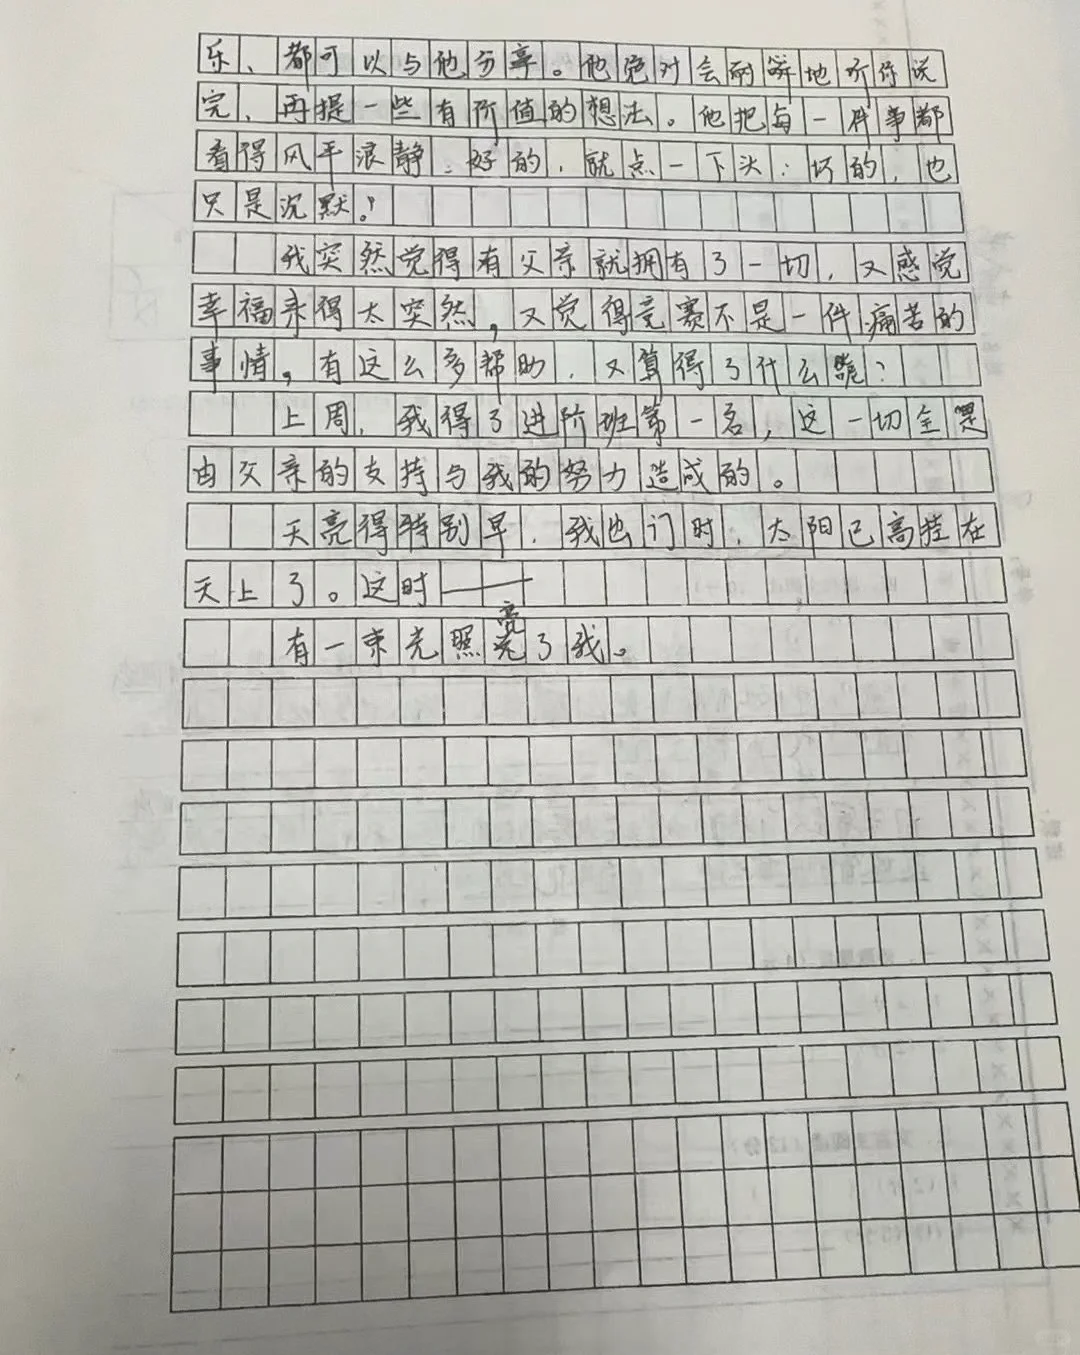 乐、都可以与他分享。他绝对会耐心地听你说
完,再提一些有价值的想法。他把每一件事都
看得风平浪静:好的,就点一下头;坏的,也
只是沉默。
我突然觉得有父亲就拥有了一切,又感觉
幸福来得太突然,又觉得竞赛不是一件痛苦的
事情,有这么多帮助,又算得了什么呢?
上周,我得了进阶班第一名,这一切全是
由父亲的支持与我的努力造成的。
天亮得特别早,我出门时,太阳已高挂在
天上了。这时——
有一束光照亮了我。